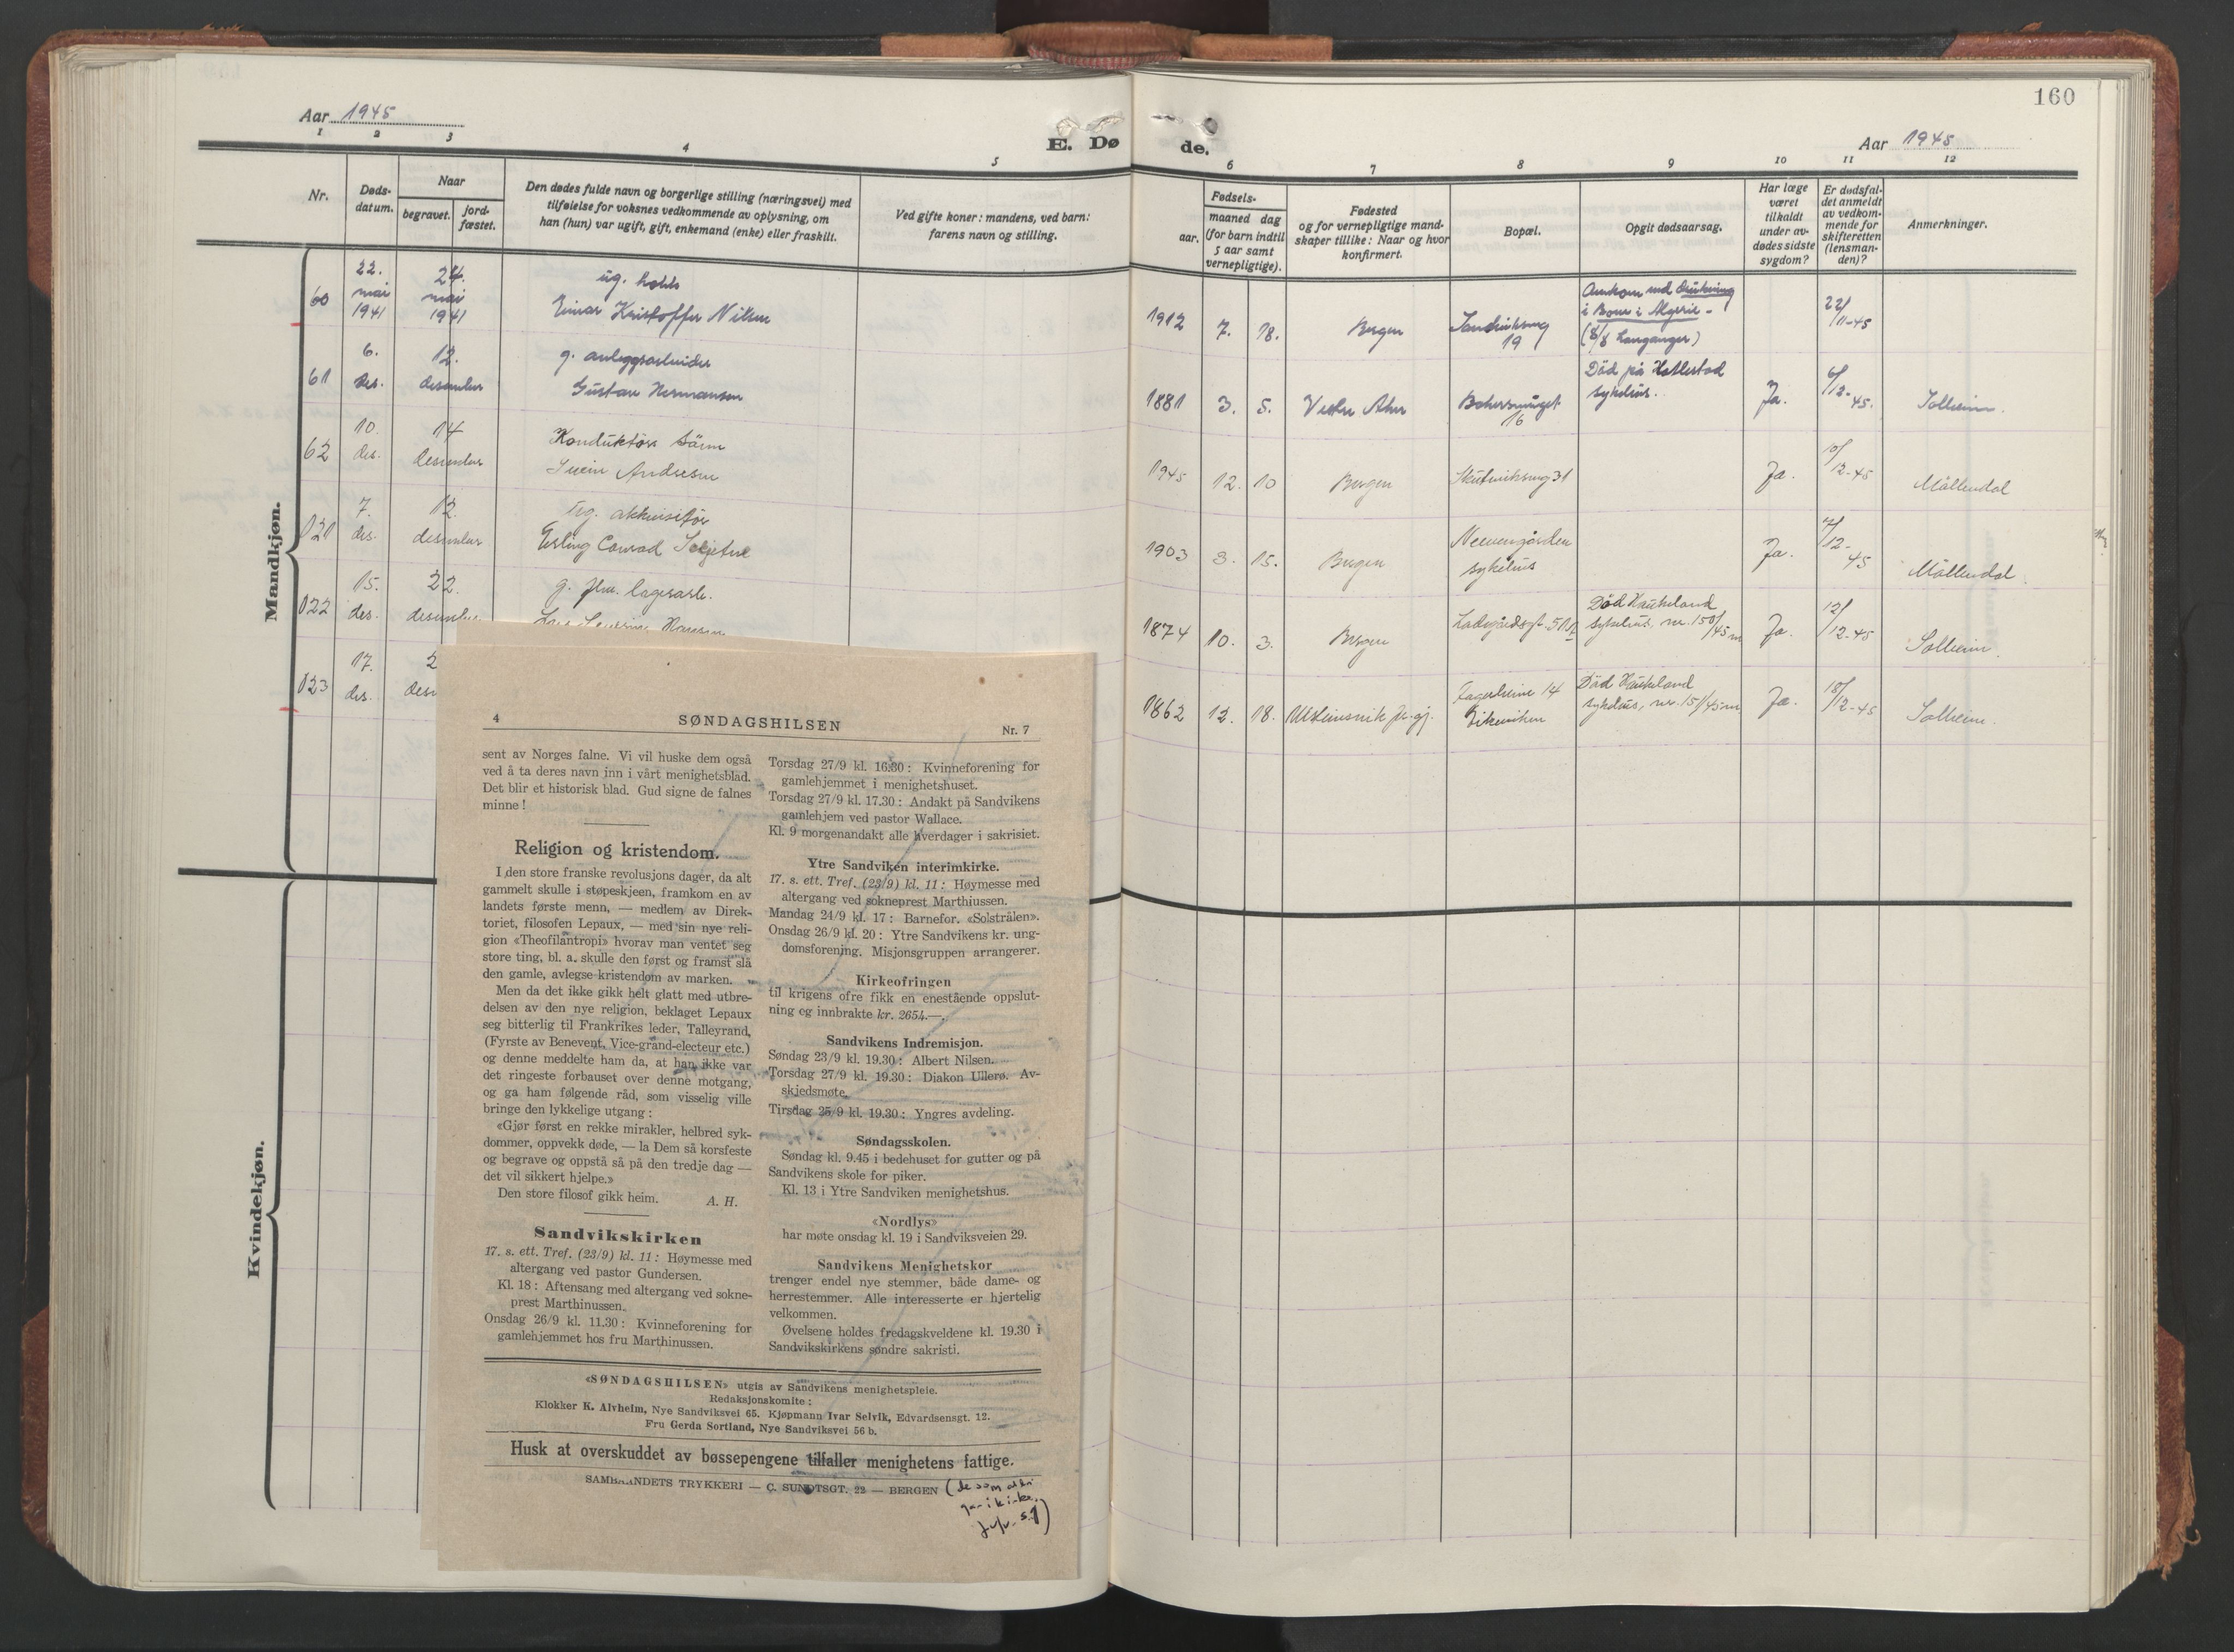 Aar 1945
E. Dø
de.
160
Aar 1945
1 2 3 4 5 6 7 8 9 10 11 12
Nr.
Døds-
datum.
Naar
begravet.
jord-
fæstet.
Den dødes fulde navn og borgerlige stilling (næringsvei) med
tilføielse for voksnes vedkommende av oplysning, om
han (hun) var ugift, gift, enkemand (enke) eller fraskilt.
Ved gifte koner: mandens, ved barn:
farens navn og stilling.
Fødsels-
aar.
maaned dag
(for barn indtil
5 aar samt
vernepligtige).
Fødested
og for vernepligtige mand-
skaper tillike: Naar og hvor
konfirmert.
Bopæl.
Opgit dødsaarsag.
Har læge
været
tilkaldt
under av-
dødes sidste
sygdom?
Er dødsfal-
det anmeldt
av vedkom-
mende for
skifteretten
(lensman-
den)?
Anmerkninger.
Mandkjøn.
60
22.
mai
1941
24.
mai
1941
ug.
Einar Kristoffer Nilsen
1912 7. 18. Bergen
19
Omkom ved
i Bone i Algerie -
22/11-45
61
6.
des.
12.
desember
g. anleggsarbeider
Gustav Hermansen
1881 3. 5. Vestre Aker
16
Död på
sykehus.
Ja.
6/12-45.
Solheim.
62
10.
des.
14
desember
Konduktör
Svein Andresen
1945 12. 10 Bergen
Skuteviksveg 31
Ja.
10/12-45
Möllendal
121
7.
des.
12.
desember
ug. akkvisitör
Erling Conrad
1903 3. 15. Bergen
Neevengården
sykehus
Ja.
7/12-45
Möllendal.
122
15.
des.
22.
desember
g. fhv. lagerarb.
1874 10. 3. Bergen
Död Haukeland
sykehus, nr. 150/45 m
Ja.
12/12-45
Solheim.
123
17.
des.
2
des
1862 12. 18.
14
Död Haukeland
sykehus, nr. 151/45 m
Ja.
18/12-45
Solheim.
Kvindekjøn.
4 SØNDAGSHILSEN Nr. 7
sent av Norges falne. Vi vil huske dem også
ved å ta deres navn inn i vårt menighetsblad.
Det blir et historisk blad. Gud signe de falnes
minne!
Religion og kristendom.
I den store franske revolusjons dager, da alt
gammelt skulle i støpeskjeen, framkom en av
landets første menn, — medlem av Direk-
toriet, filosofen Lepaux, — med sin nye reli-
gion «Theofilantropi» hvorav man ventet seg
store ting, bl. a. skulle den først og framst slå
den gamle, avlegse kristendom av marken.
Men da det ikke gikk helt glatt med utbre-
delsen av den nye religion, beklaget Lepaux
seg bitterlig til Frankrikes leder, Talleyrand,
(Fyrste av Benevent, Vice-grand-electeur etc.)
og denne meddelte ham da, at han ikke var
det ringeste forbauset over denne motgang,
og ga ham følgende råd, som visselig ville
bringe den lykkelige utgang:
«Gjør først en rekke mirakler, helbred syk-
dommer, oppvekk døde, — la Dem så korsfeste
og begrave og oppstå så på den tredje dag —
det vil sikkert hjelpe.»
Den store filosof gikk heim. A. H.
Sandvikskirken
17. s. ett. Tref. (23/9) kl. 11: Høymesse med
altergang ved pastor Gundersen.
Kl. 18: Aftensang med altergang ved sokne-
prest Marthinussen.
Onsdag 26/9 kl. 11.30: Kvinneforening for
gamlehjemmet hos fru Marthinussen.
Torsdag 27/9 kl. 16.30: Kvinneforening for
gamlehjemmet i menighetshuset.
Torsdag 27/9 kl. 17.30: Andakt på Sandvikens
gamlehjem ved pastor Wallace.
Kl. 9 morgenandakt alle hverdager i sakrisiet.
Ytre Sandviken interimkirke.
17. s. ett. Tref. (23/9) kl. 11: Høymesse med
altergang ved sokneprest Marthiussen.
Mandag 24/9 kl. 17: Barnefor. «Solstrålen».
Onsdag 26/9 kl. 20: Ytre Sandvikens kr. ung-
domsforening. Misjonsgruppen arrangerer.
Kirkeofringen
til krigens ofre fikk en enestående oppslut-
ning og innbrakte kr. 2654.—.
Sandvikens Indremisjon.
Søndag 23/9 kl. 19.30: Albert Nilsen.
Torsdag 27/9 kl. 19.30: Diakon Ullerø. Av-
skjedsmøte.
Tirsdag 25/9 kl. 19.30: Yngres avdeling.
Søndagsskolen.
Søndag kl. 9.45 i bedehuset for gutter og på
Sandvikens skole for piker.
Kl. 13 i Ytre Sandviken menighetshus.
«Nordlys»
har møte onsdag kl. 19 i Sandviksveien 29.
Sandvikens Menighetskor
trenger endel nye stemmer, både dame- og
herrestemmer. Alle interesserte er hjertelig
velkommen.
Øvelsene holdes fredagskveldene kl. 19.30 i
Sandvikskirkens søndre sakristi.
«SØNDAGSHILSEN» utgis av Sandvikens menighetspleie.
Redaksjonskomite:
Klokker K. Alvheim, Nye Sandviksvei 65. Kjøpmann Ivar Selvik, Edvardsensgt. 12.
Fru Gerda Sortland, Nye Sandviksvei 56 b.
Husk at overskuddet av bøssepengene tilfaller menighetens fattige.
SAMBANDETS TRYKKERI — C. SUNDTSGT. 22 — BERGEN
(de som aldri
går i kirke,